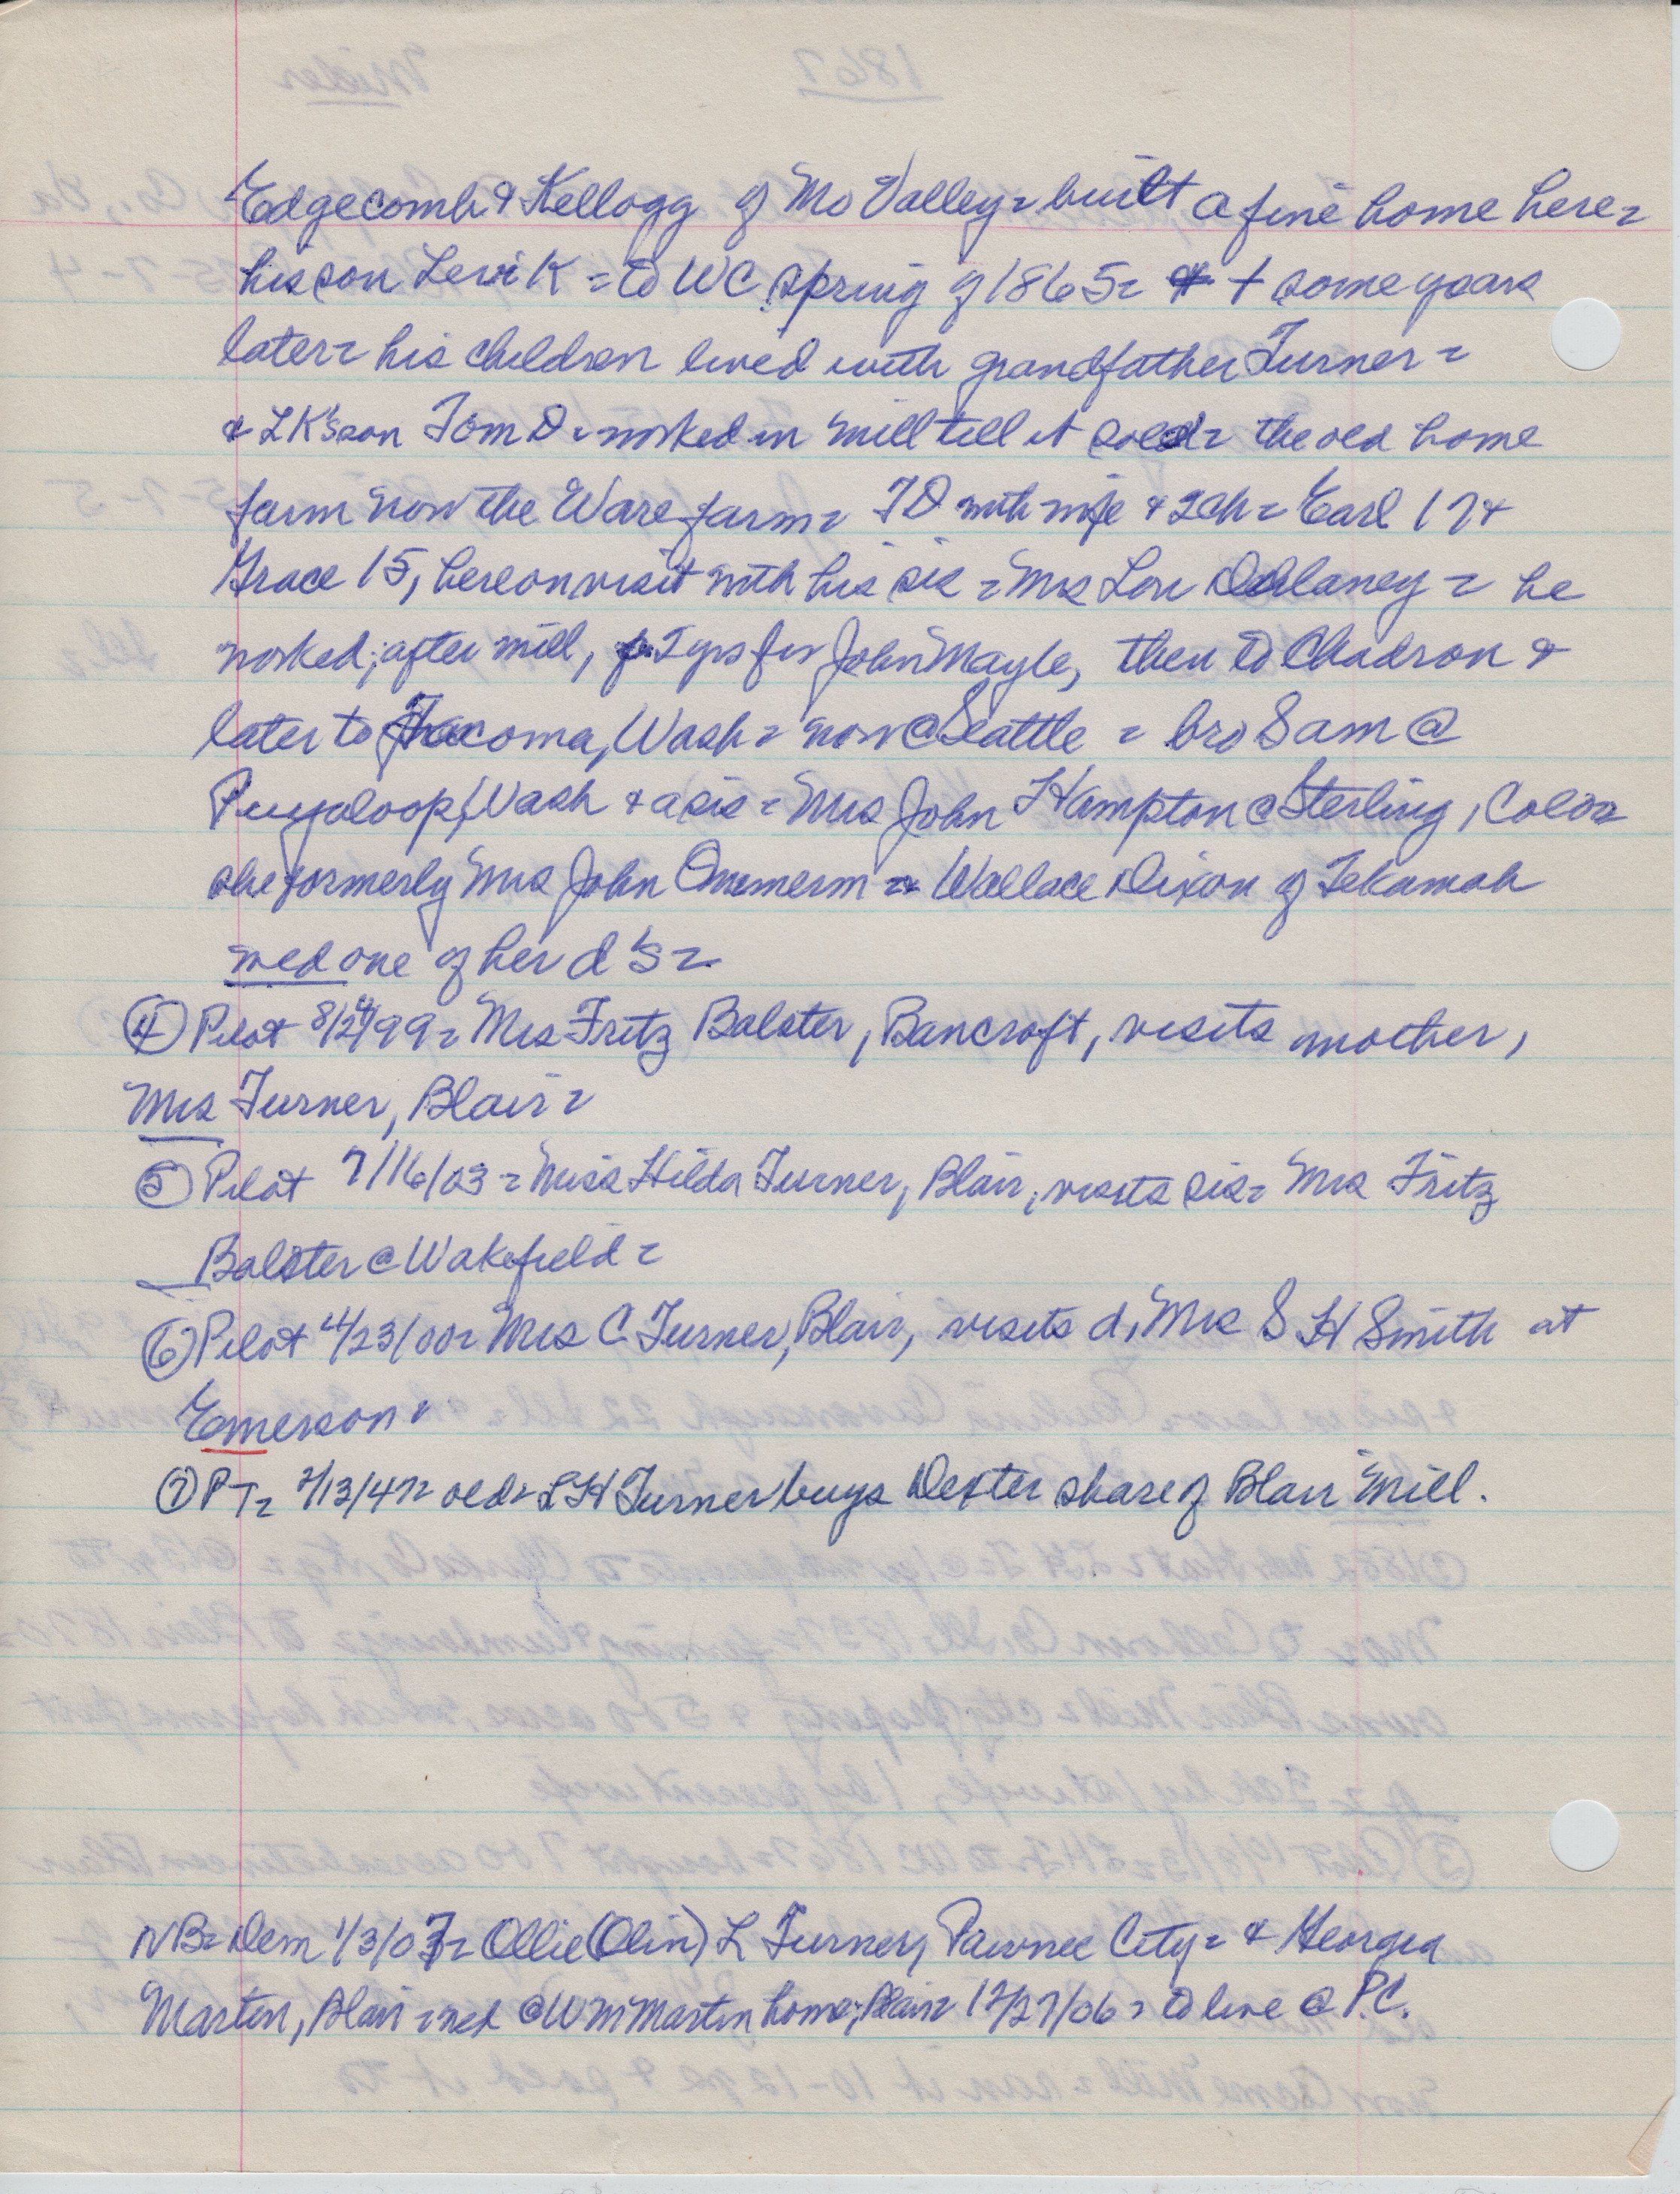 Edgecomb & Kellogg of Mo Valley = built a fine home here =
his son Levi K = to WC spring of 1865 = + some years
later = his children lived with grandfather Turner =
& LK's son Tom D = worked in mill till it sold = the old home
farm now the Ware farm = TD with wife & 2 ch = Earl 17 &
Grace 15, here on visit with his sis = Mrs Lou Delaney = he
worked, after mill, yrs for John Mayle, then to Chadron &
later to Tacoma, Wash = now @ Seattle = bro Sam @
Puyaloop, Wash & a sis = Mrs John Hampton @ Sterling, Colo =
she formerly Mrs John = Wallace Dixon of Tekamah
wed one of her d's =
④ Pilot 8/24/99 = Mrs Fritz Balster, Bancroft, visits mother,
Mrs Turner, Blair =
⑤ Pilot 7/16/03 = Miss Hilda Turner, Blair, visits sis = Mrs Fritz
Balster @ Wakefield =
⑥ Pilot 4/23/00 = Mrs C Turner, Blair, visits d, Mrs S H Smith at
Emerson =
⑦ PT = 7/13/47 = old = LH Turner buys Dexter share of Blair Mill.
NB = Dem 1/3/07 = Ollie (Olin) L Turner, Pawnee City = & Georgia
Martin, Blair = wed @ Wm Martin home, Blair = 12/27/06 = to live @ P.C.